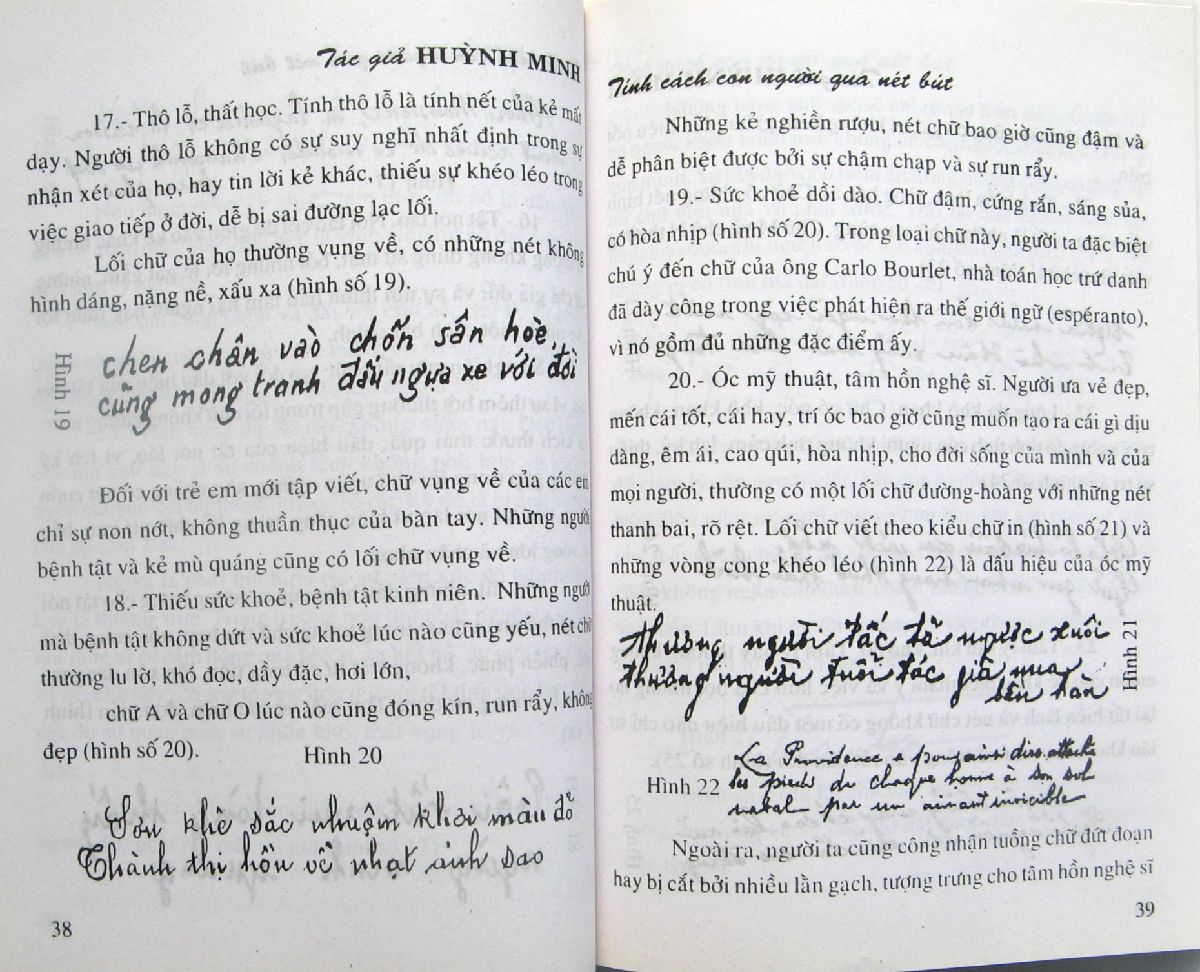 Tác giả HUỲNH MINH
17.- Thô lỗ, thất học. Tính thô lỗ là tính nết của kẻ mất
dạy. Người thô lỗ không có sự suy nghĩ nhất định trong sự
nhận xét của họ, hay tin lời kẻ khác, thiếu sự khéo léo trong
việc giao tiếp ở đời, dễ bị sai đường lạc lối.
Lối chữ của họ thường vụng về, có những nét không
hình dáng, nặng nề, xấu xa (hình số 19).
Hình 19
chen chân vào chốn sân hoè,
cũng mong tranh đấu ngựa xe với đời
Đối với trẻ em mới tập viết, chữ vụng về của các em
chỉ sự non nớt, không thuần thục của bàn tay. Những người
bệnh tật và kẻ mù quáng cũng có lối chữ vụng về.
18.- Thiếu sức khoẻ, bệnh tật kinh niên. Những người
mà bệnh tật không dứt và sức khoẻ lúc nào cũng yếu, nét chữ
thường lu lờ, khó đọc, dầy đặc, hơi lớn,
chữ A và chữ O lúc nào cũng đóng kín, run rẩy, không
đẹp (hình số 20).
Hình 20
Son khè sắc nhuộm khơi màu đỏ
Thành thị hồn về nhạt ánh sao
38
Tính cách con người qua nét bút
Những kẻ nghiền rượu, nét chữ bao giờ cũng đậm và
dễ phân biệt được bởi sự chậm chạp và sự run rẩy.
19.- Sức khoẻ dồi dào. Chữ đậm, cứng rắn, sáng sủa,
có hòa nhịp (hình số 20). Trong loai chữ này, người ta đặc biệt
chú ý đến chữ của ông Carlo Bourlet, nhà toán học trứ danh
đã dày công trong việc phát hiện ra thế giới ngữ (espéranto),
vì nó gồm đủ những đặc điểm ấy.
20.- Óc mỹ thuật, tâm hồn nghệ sĩ. Người ưa vẻ đẹp,
mến cái tốt, cái hay, trí óc bao giờ cũng muốn tạo ra cái gì dịu
dàng, êm ái, cao quí, hòa nhịp, cho đời sống của mình và của
mọi người, thường có một lối chữ đường-hoàng với những nét
thanh bai, rõ rệt. Lối chữ viết theo kiểu chữ in (hình số 21) và
những vòng cong khéo léo (hình 22) là dấu hiệu của óc mỹ
thuật.
thương người tấc tả ngược xuôi
thương người tuổi tác già nua
Hình 21
La Providence a
les pieds de chaque homme à son sol
natal par un aimant invicible
Hình 22
Ngoài ra, người ta cũng công nhận tuồng chữ đứt đoạn
hay bị cắt bởi nhiều lằn gạch, tượng trưng cho tâm hồn nghệ sĩ
39